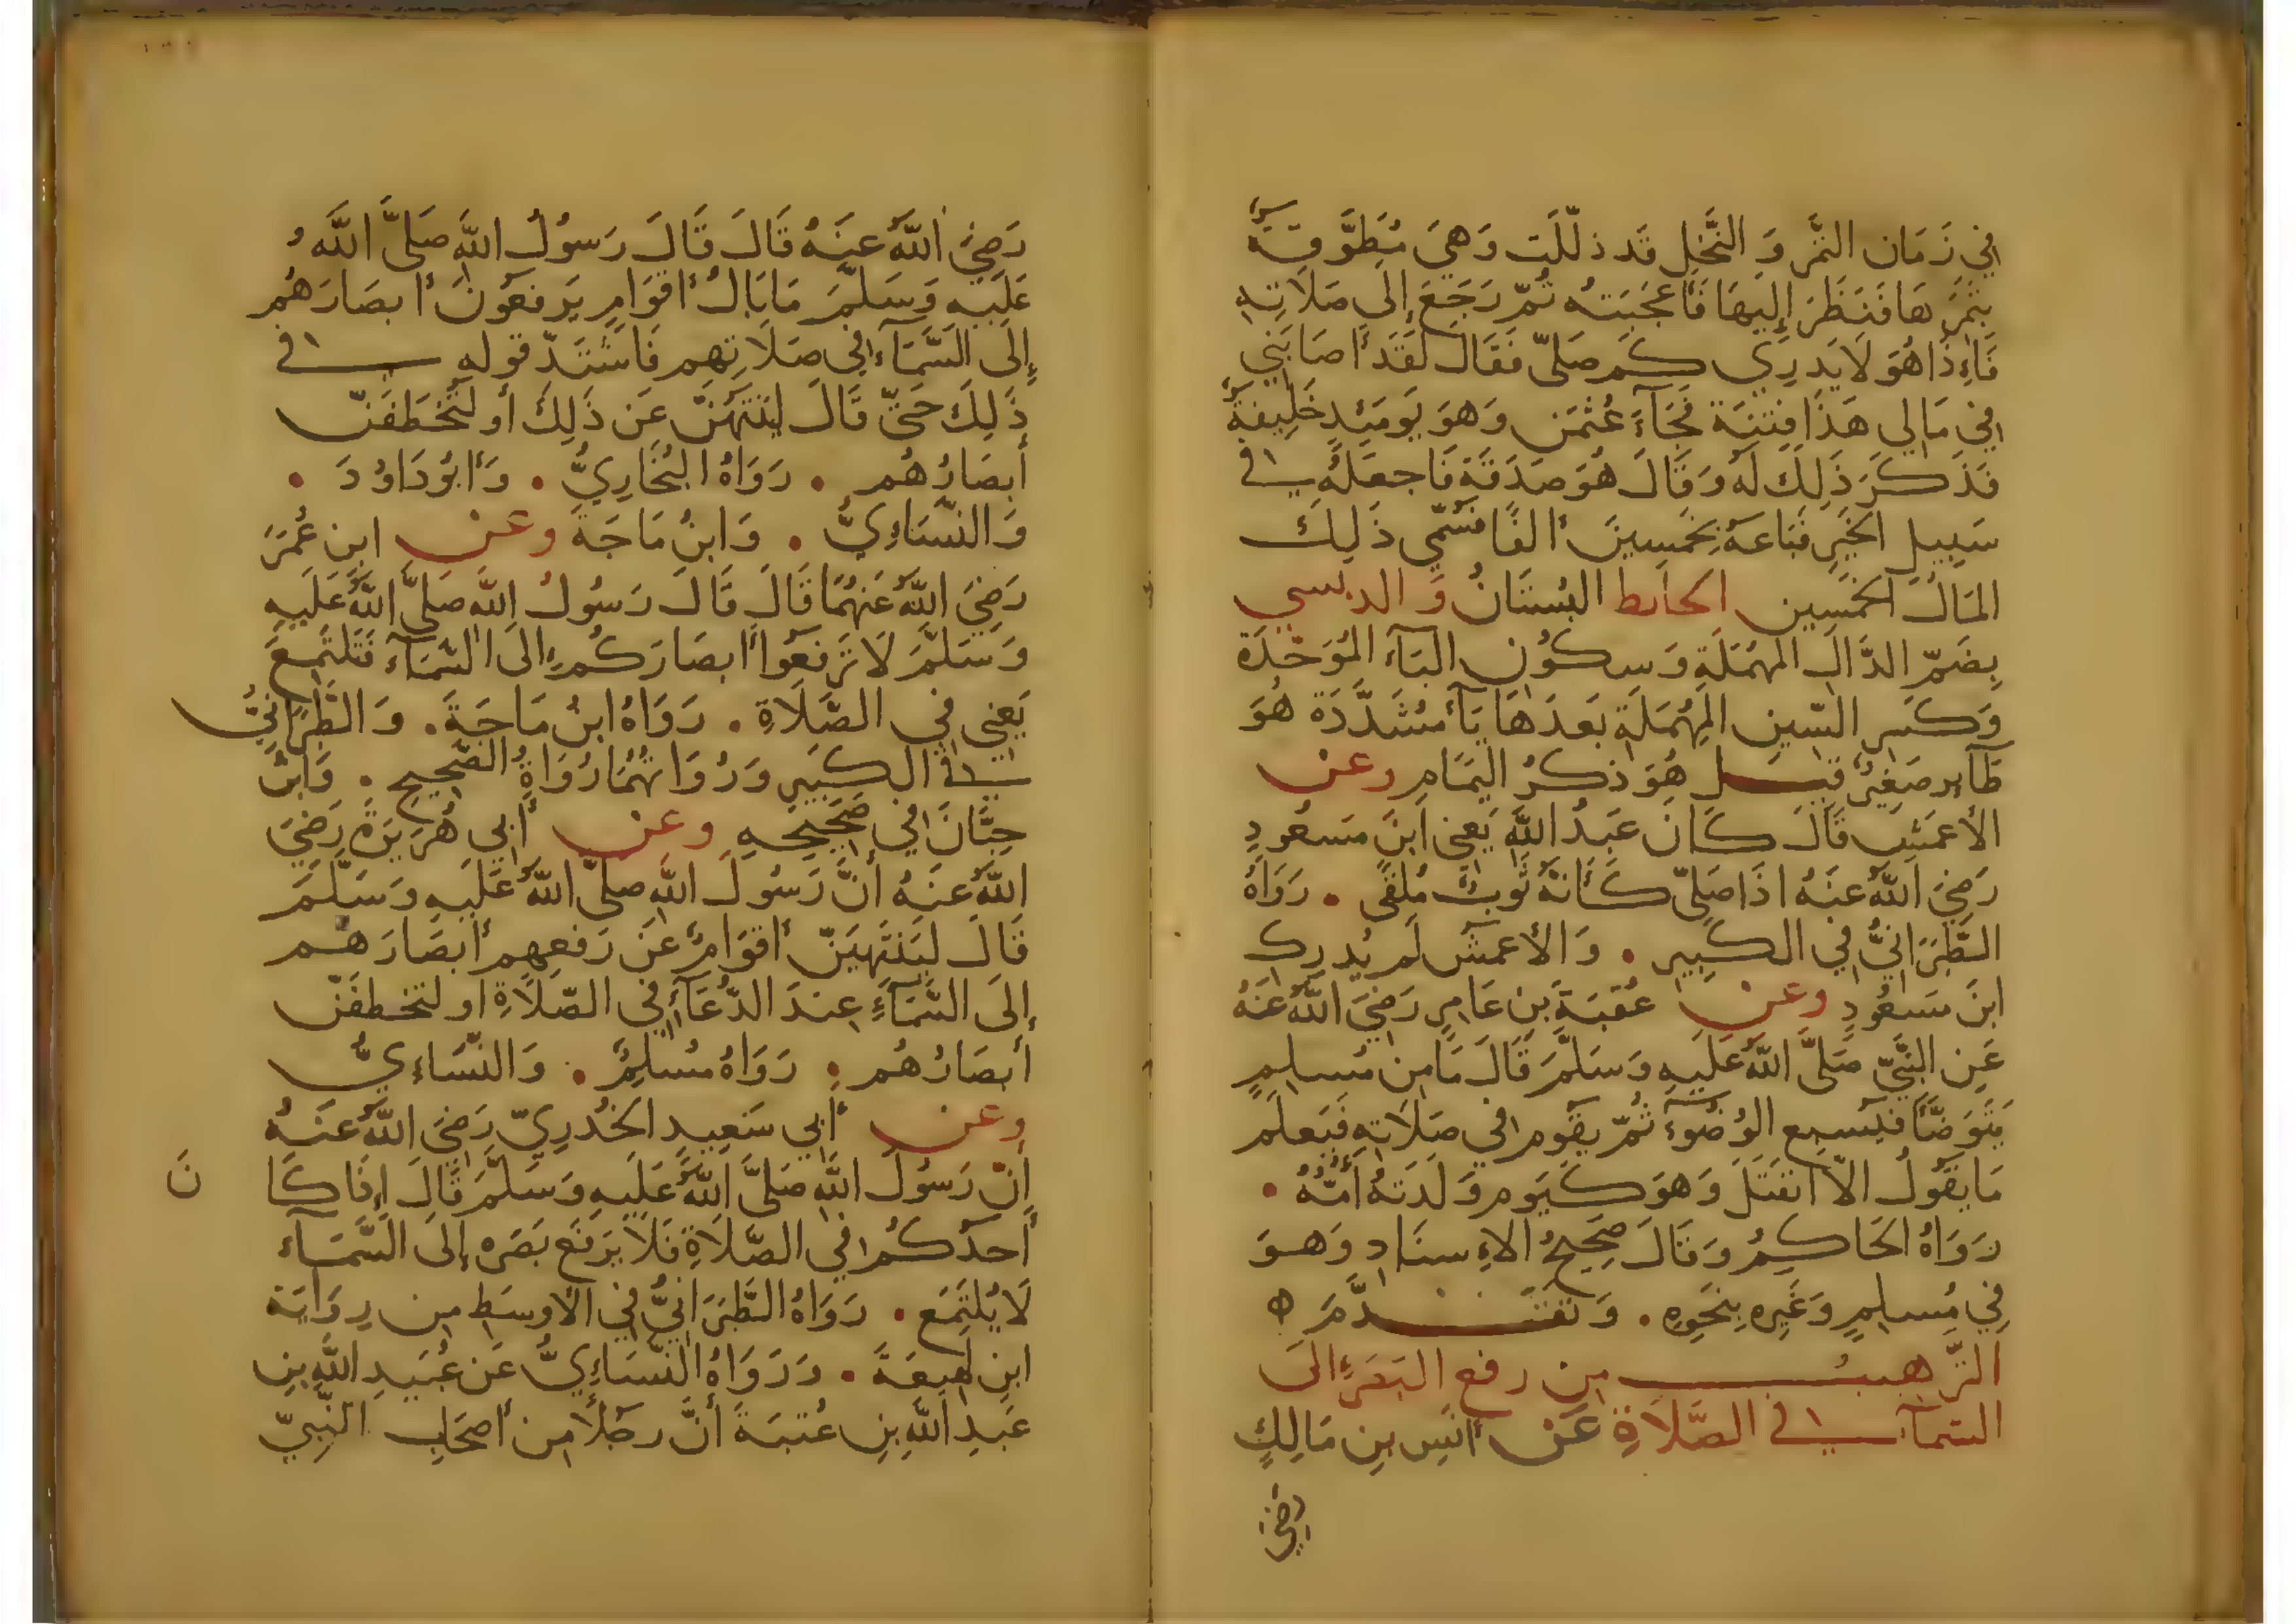 في زَمَان الثَّمَر وَ النَّخل قَد ذلّلَت وَهِيَ مُطَوَّقَة
بثَمَرِهَا فَنَظَرَ إلَيهَا فَأعجَبَتهُ ثُمّ رَجَعَ إلَى صَلَاتِهِ
فَإِذَا هُوَ لَا يَدرِي كَم صَلّى فَقَالَ لَقَد أصَابَتنِي
في مَالِي هَذَا فِتنَة فَجَآءَ عُثمَن وَهوَ يَومَئِدٍ خَلِيفَةٌ
فَذَكَرَ ذَلِكَ لَهُ وَقَالَ هُوَ صَدَقَة فَاجعَلهُ في
سَبِيلِ الخَيرِ فَبَاعَهُ بِخَمسِينَ ألفًا فَسُمّي ذَلِكَ
المَالُ الخَمسِين الحايط البُستَانُ وَ الدبسي
بِضَمّ الدَّالِ المهمَلَةِ وَسكُونِ البَآءِ المُوَحّدَة
وَكَسرِ السّينِ المهمَلَةِ بَعدَهَا يَآ مُشَدَّدَة هُوَ
طَآير صَغِيرٌ قيل هُوَ ذكرُ اليَمَامِ وعن
الأعمَشِ قَالَ كَانَ عَبدُ اللَّهِ يَعنِي ابنَ مَسعُودٍ
رَضيَ اللَّهُ عَنهُ اذَا صَلّى كَأَنّهُ ثَوبٌ مُلقًى . رَوَاهُ
الطَّبَرَانيُّ في الكَبِير . وَالأعمَش لَم يُدرِك
ابنَ مسعُودٍ وعن عُقبَةَ بنِ عَامِرٍ رَضيَ اللَّهُ عَنهُ
عَنِ النَّبِيّ صَلَّى اللَّهُ عَلَيهِ وَسَلَّمَ قَالَ مَا مِن مُسلِمٍ
يَتَوَضَّأُ فَيُسبِغ الوُضُوءَ ثُمّ يقَوم في صَلَاتِهِ فَيَعلَم
مَا يَقُولُ الاّ انفَتَلَ وَهوَ كَيَوم وَلَدَتهُ أُمُّهُ .
رَوَاهُ الحَاكِمُ وَقَالَ صَحِيحُ الاِسنَادِ وَهوَ
فِي مُسلِمٍ وَغَيرِهِ بِنَحوِهِ . وَتقَدَّمَ ه
التَّرهيبُ مِن رفع البَصَرِ إلَى
السَّمآءِ في الصَّلَاةِ عَن أنَسِ بنِ مَالِكٍ
رَضيَ
رَضيَ اللَّهُ عَنهُ قَالَ قَالَ رَسولُ اللَّهِ صَلَّى اللَّهُ
عَلَيهِ وَسَلَّمَ مَا بَالُ أقوَامٍ يَرفَعُونَ أبصَارَهُم
إلَى السَّمَآءِ في صَلَاتِهِم فَاشتَدّ قوله في
ذَلِكَ حَتّى قَالَ ليَنتَهُنّ عَن ذَلِكَ أو لَتُخطَفَنّ
أبصَارُهُم . رَوَاهُ البُخَارِيُّ . وَأبُو دَاوُدَ .
وَالنّسَاءِيُّ . وَابنُ مَاجَةَ وعَن ابنِ عُمَرَ
رَضيَ اللَّهُ عَنهُمَا قَالَ قَالَ رَسُولُ اللَّهِ صَلَّى اللَّهُ عَلَيهِ
وَسَلَّمَ لَا تَرفَعُوا أبصَارَكُم إلَى السَّمَآءِ فَتَلتَمِعَ
يَعنِي فِي الصَّلَاةِ . رَوَاهُ ابنُ مَاجَةَ . وَالطَّبَرَانيُّ
في الكَبِيرِ وَرُوَاتهُمَا رُوَاةُ الصَّحِيح . وَابنُ
حِبَّانَ في صَحِيحِهِ وعن أَبي هُرَيرَةَ رَضيَ
اللَّهُ عَنهُ أنَّ رَسُولَ اللَّهِ صَلَّى اللَّهُ عَلَيهِ وَسَلَّمَ
قَالَ لَيَنتَهِيَنّ أقوَامٌ عَن رَفعِهِم أبصَارَهُم
إلَى السَّمَآءِ عِندَ الدُّعَآءِ في الصّلَاةِ أو لتخطفَنّ
أبصَارُهُم . رَوَاهُ مُسلِمٌ . وَالنّسَاءِيُّ
وعن أَبي سَعِيدٍ الخُدرِيّ رَضيَ اللَّهُ عَنهُ
أنّ رَسُولَ اللَّهِ صَلَّى اللَّهُ عَلَيهِ وَسَلَّمَ قَالَ إذَا كَا نَ
أحدُكُم في الصَّلَاةِ فَلَا يَرفَع بَصَرَه إلَى السَّمَآءِ
لَا يُلتَمَع . رَوَاهُ الطَّبَرَانيُّ في الأوسَطِ مِن رِوَايَة
ابنِ لَهِيعَةَ . وَرَوَاهُ النّسَاءِيُّ عَن عُبَيدِ اللَّهِ بنِ
عَبدِ اللَّهِ بنِ عُتبَةَ أنَّ رجُلًا مِن أصحَابِ النَّبِيّ